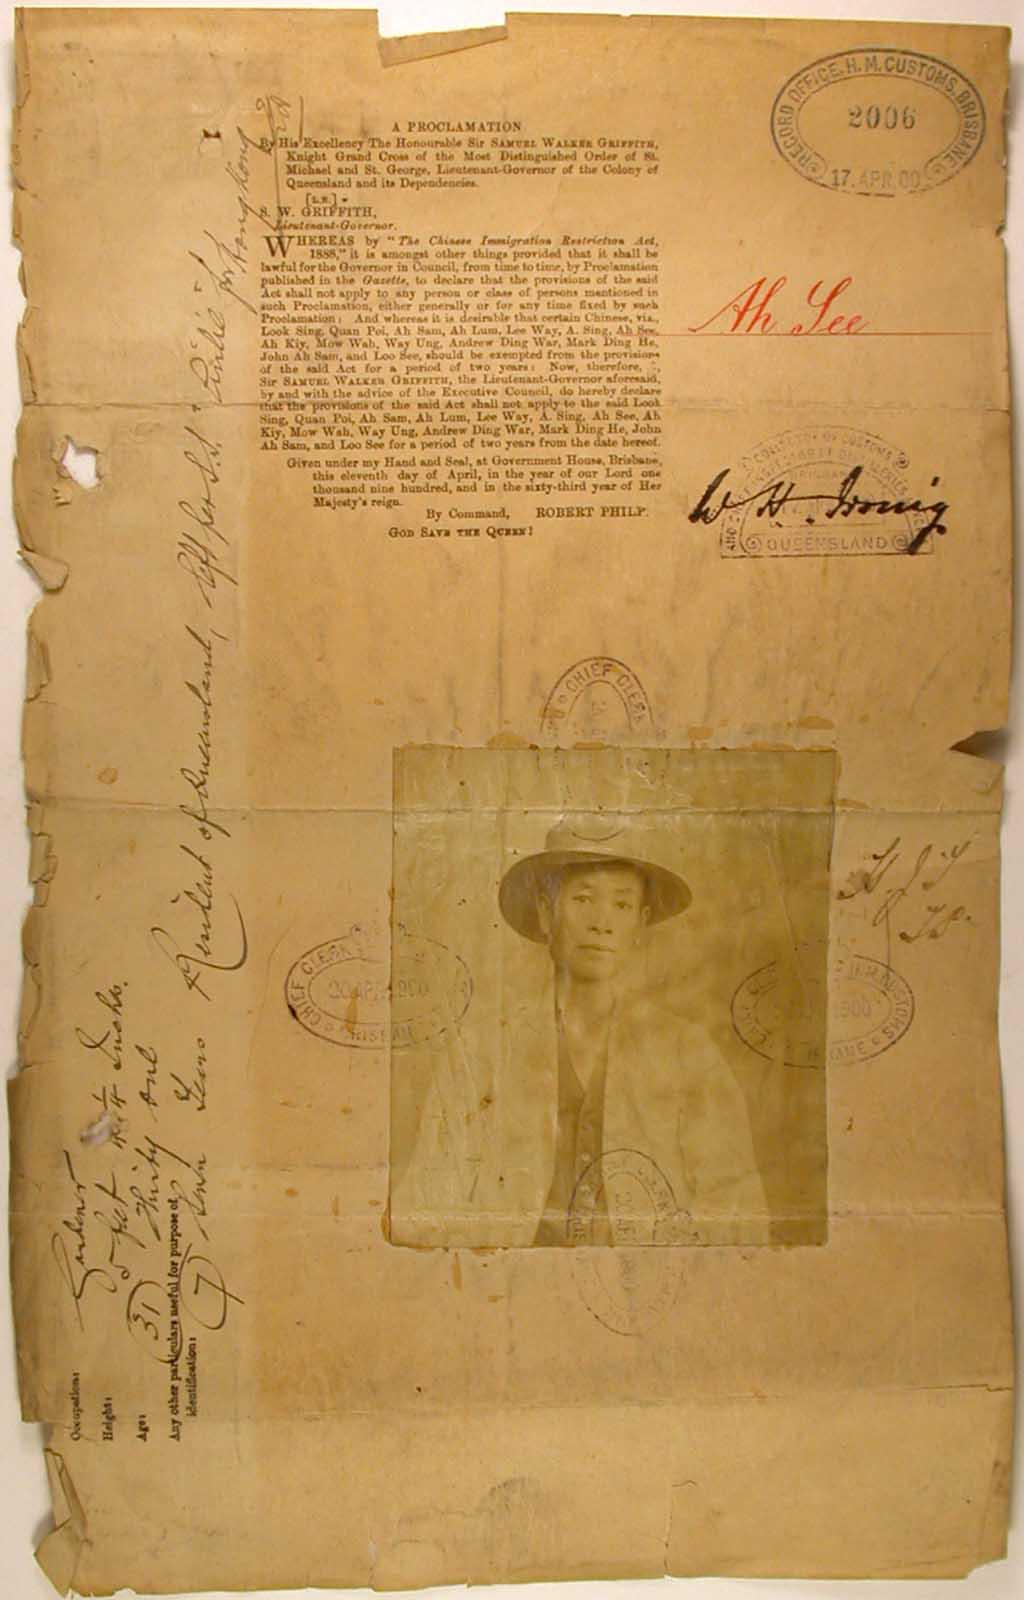 A PROCLAMATION
By His Excellency The Honourable Sir SAMUEL WALKER GRIFFITH,
Knight Grand Cross of the Most Distinguished Order of St.
Michael and St. George, Lieutenant-Governor of the Colony of
Queensland and its Dependencies.
[L.S.]
S. W. GRIFFITH,
Lieutenant-Governor.
WHEREAS by "The Chinese Immigration Restriction Act,
1888," it is amongst other things provided that it shall be
lawful for the Governor in Council, from time to time, by Proclamation
published in the Gazette, to declare that the provisions of the said
Act shall not apply to any person or class of persons mentioned in
such Proclamation, either generally or for any time fixed by such
Proclamation: And whereas it is desirable that certain Chinese, viz.,
Look Sing, Quan Poi, Ah Sam, Ah Lum, Lee Way, A. Sing, Ah See,
Ah Kiy, Mow Wah, Way Ung, Andrew Ding War, Mark Ding He,
John Ah Sam, and Loo See, should be exempted from the provisions
of the said Act for a period of two years: Now, therefore, I,
Sir SAMUEL WALKER GRIFFITH, the Lieutenant-Governor aforesaid,
by and with the advice of the Executive Council, do hereby declare
that the provisions of the said Act shall not apply to the said Look
Sing, Quan Poi, Ah Sam, Ah Lum, Lee Way, A. Sing, Ah See, Ah
Kiy, Mow Wah, Way Ung, Andrew Ding War, Mark Ding He, John
Ah Sam, and Loo See for a period of two years from the date hereof.
Given under my Hand and Seal, at Government House, Brisbane,
this eleventh day of April, in the year of our Lord one
thousand nine hundred, and in the sixty-third year of Her
Majesty's reign.
By Command, ROBERT PHILP.
GOD SAVE THE QUEEN!
RECORD OFFICE. H. M. CUSTOMS. BRISBANE
2006
17. APR. 00
Ah See
W H Irving
COLLECTOR OF CUSTOMS
QUEENSLAND
CHIEF CLERK
CHIEF CLERK
20 APR 1900
BRISBANE
H.M. CUSTOMS
1900
BANE
CLERK
20 AP
Occupation: Gardener
Height: 5 feet 4 1/4 Inchs.
Age: (31) Thirty one
Any other particulars useful for purpose of
identification:
(7) Seven Years Resident of Queensland, left per S.S.
for Hong Kong